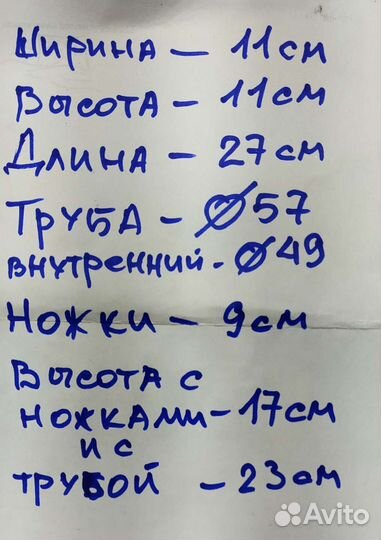 Ширина – 11см
Высота – 11см
Длина – 27см
Труба – Ø57
внутренний - Ø49
Ножки – 9см
Высота с
ножками – 17см
и с
трубой – 23см
Avito